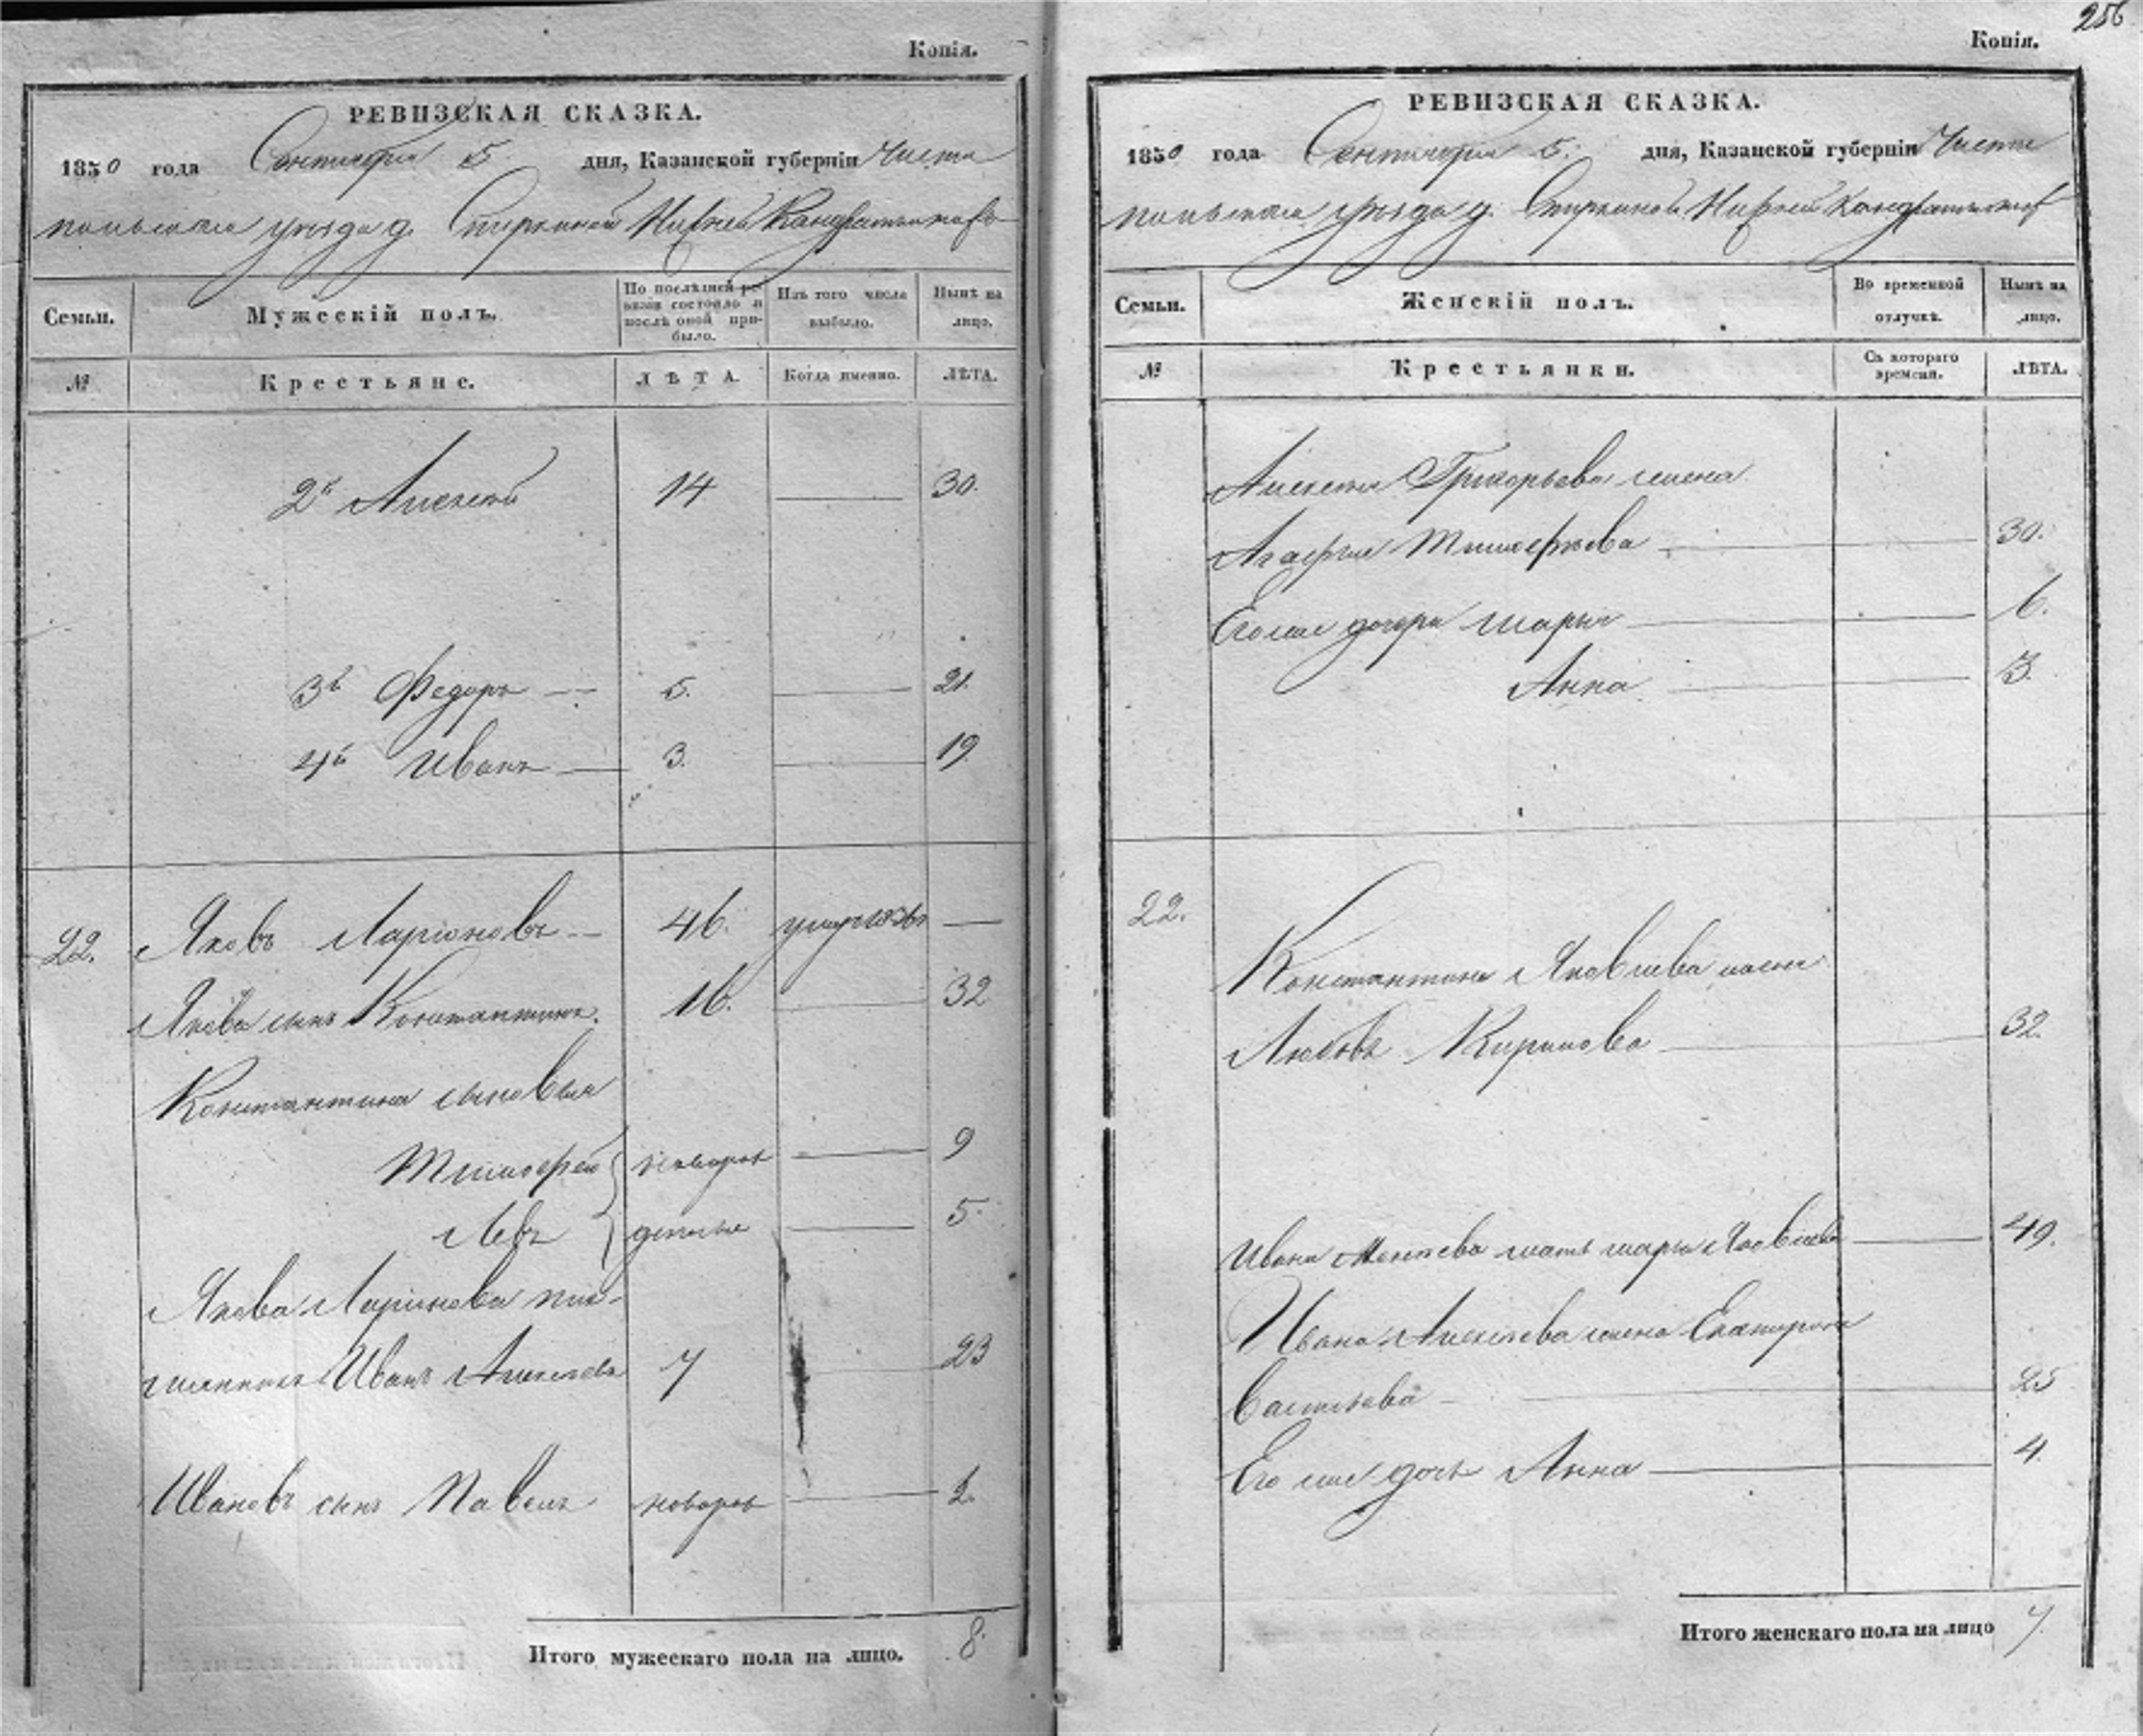 Копія.
РЕВИЗСКАЯ СКАЗКА.
1850 года Сентября 5 дня, Казанской губерніи Чисто
польскаго уѣзда д. Нижней Кондратьиной
Семьи. Мужескій полъ. По послѣдней ревизіи состояло и послѣ оной прибыло. Изъ того числа выбыло. Нынѣ на лицо.
№ Крестьяне. ЛѢТА. Когда именно. ЛѢТА.
2й Алексей 14 30.
3й Федоръ 5. 21.
4й Иванъ 3. 19
22. Яковъ Ларіоновъ 46. —
Якова сынъ Константинъ. 16. 32
Константина сыновья
Тимофей новорож 9
Левъ денные 5.
Якова Ларіонова пле-
мянникъ Иванъ Алексеевъ 7 23
Ивановъ сынъ Павелъ новорож 2.
Итого мужескаго пола на лицо. 8.
256
Копія.
РЕВИЗСКАЯ СКАЗКА.
1850 года Сентября 5. дня, Казанской губерніи Чисто
польскаго уѣзда д. Нижней Кондратьиной
Семьи. Женскій полъ. Во временной отлучкѣ. Нынѣ на лицо.
№ Крестьянки. Съ котораго времени. ЛѢТА.
Алексея Григорьева жена
Агафья Тимофеева 30.
Его же дочери Марья 6.
Анна 3.
22.
Константина Яковлева жена
Любовь Кирилова 32.
Ивана Алексеева мать Марья Яковлева 49.
Ивана Алексеева жена Екатерина
Васильева 25
Его же дочь Анна 4.
Итого женскаго пола на лицо 7.